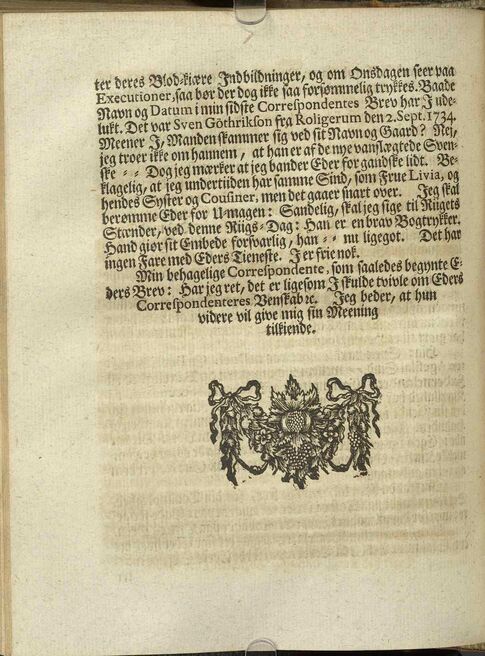 ter deres Blod-kiære Indbildninger, og om Onsdagen seer paa
Executioner, saa bør der dog ikke saa forsømmelig trykkes. Baade
Navn og Datum i min sidste Correspondentes Brev har J ude-
lukt. Det var Sven Göthrikson fra Roligerum den 2. Sept. 1734.
Meener J, Manden skammer sig ved sit Navn og Gaard? Nej,
jeg troer ikke om hannem, at han er af de nye vanslægtede Sven-
ske - - Dog jeg mærker at jeg bander Eder for gandske lidt. Be-
klagelig, at jeg undertiden har samme Sind, som Frue Livia, og
hendes Syster og Cousiner, men det gaaer snart over. Jeg skal
berømme Eder for U-magen: Sandelig, skal jeg sige til Rîigets
Stænder, ved denne Rîigs-Dag: Han er en brav Bogtrykker.
Hand giør sit Embede forsvarlig, han - - nu ligegot. Det har
ingen Fare med Eders Tieneste. J er frie nok.
Min behagelige Correspondente, som saaledes begynte E-
ders Brev: Har jeg ret, det er ligesom J skulde tvivle om Eders
Correspondenteres Venskab ꝛc. Jeg beder, at hun
videre vil give mig sin Meening
tilkiende.